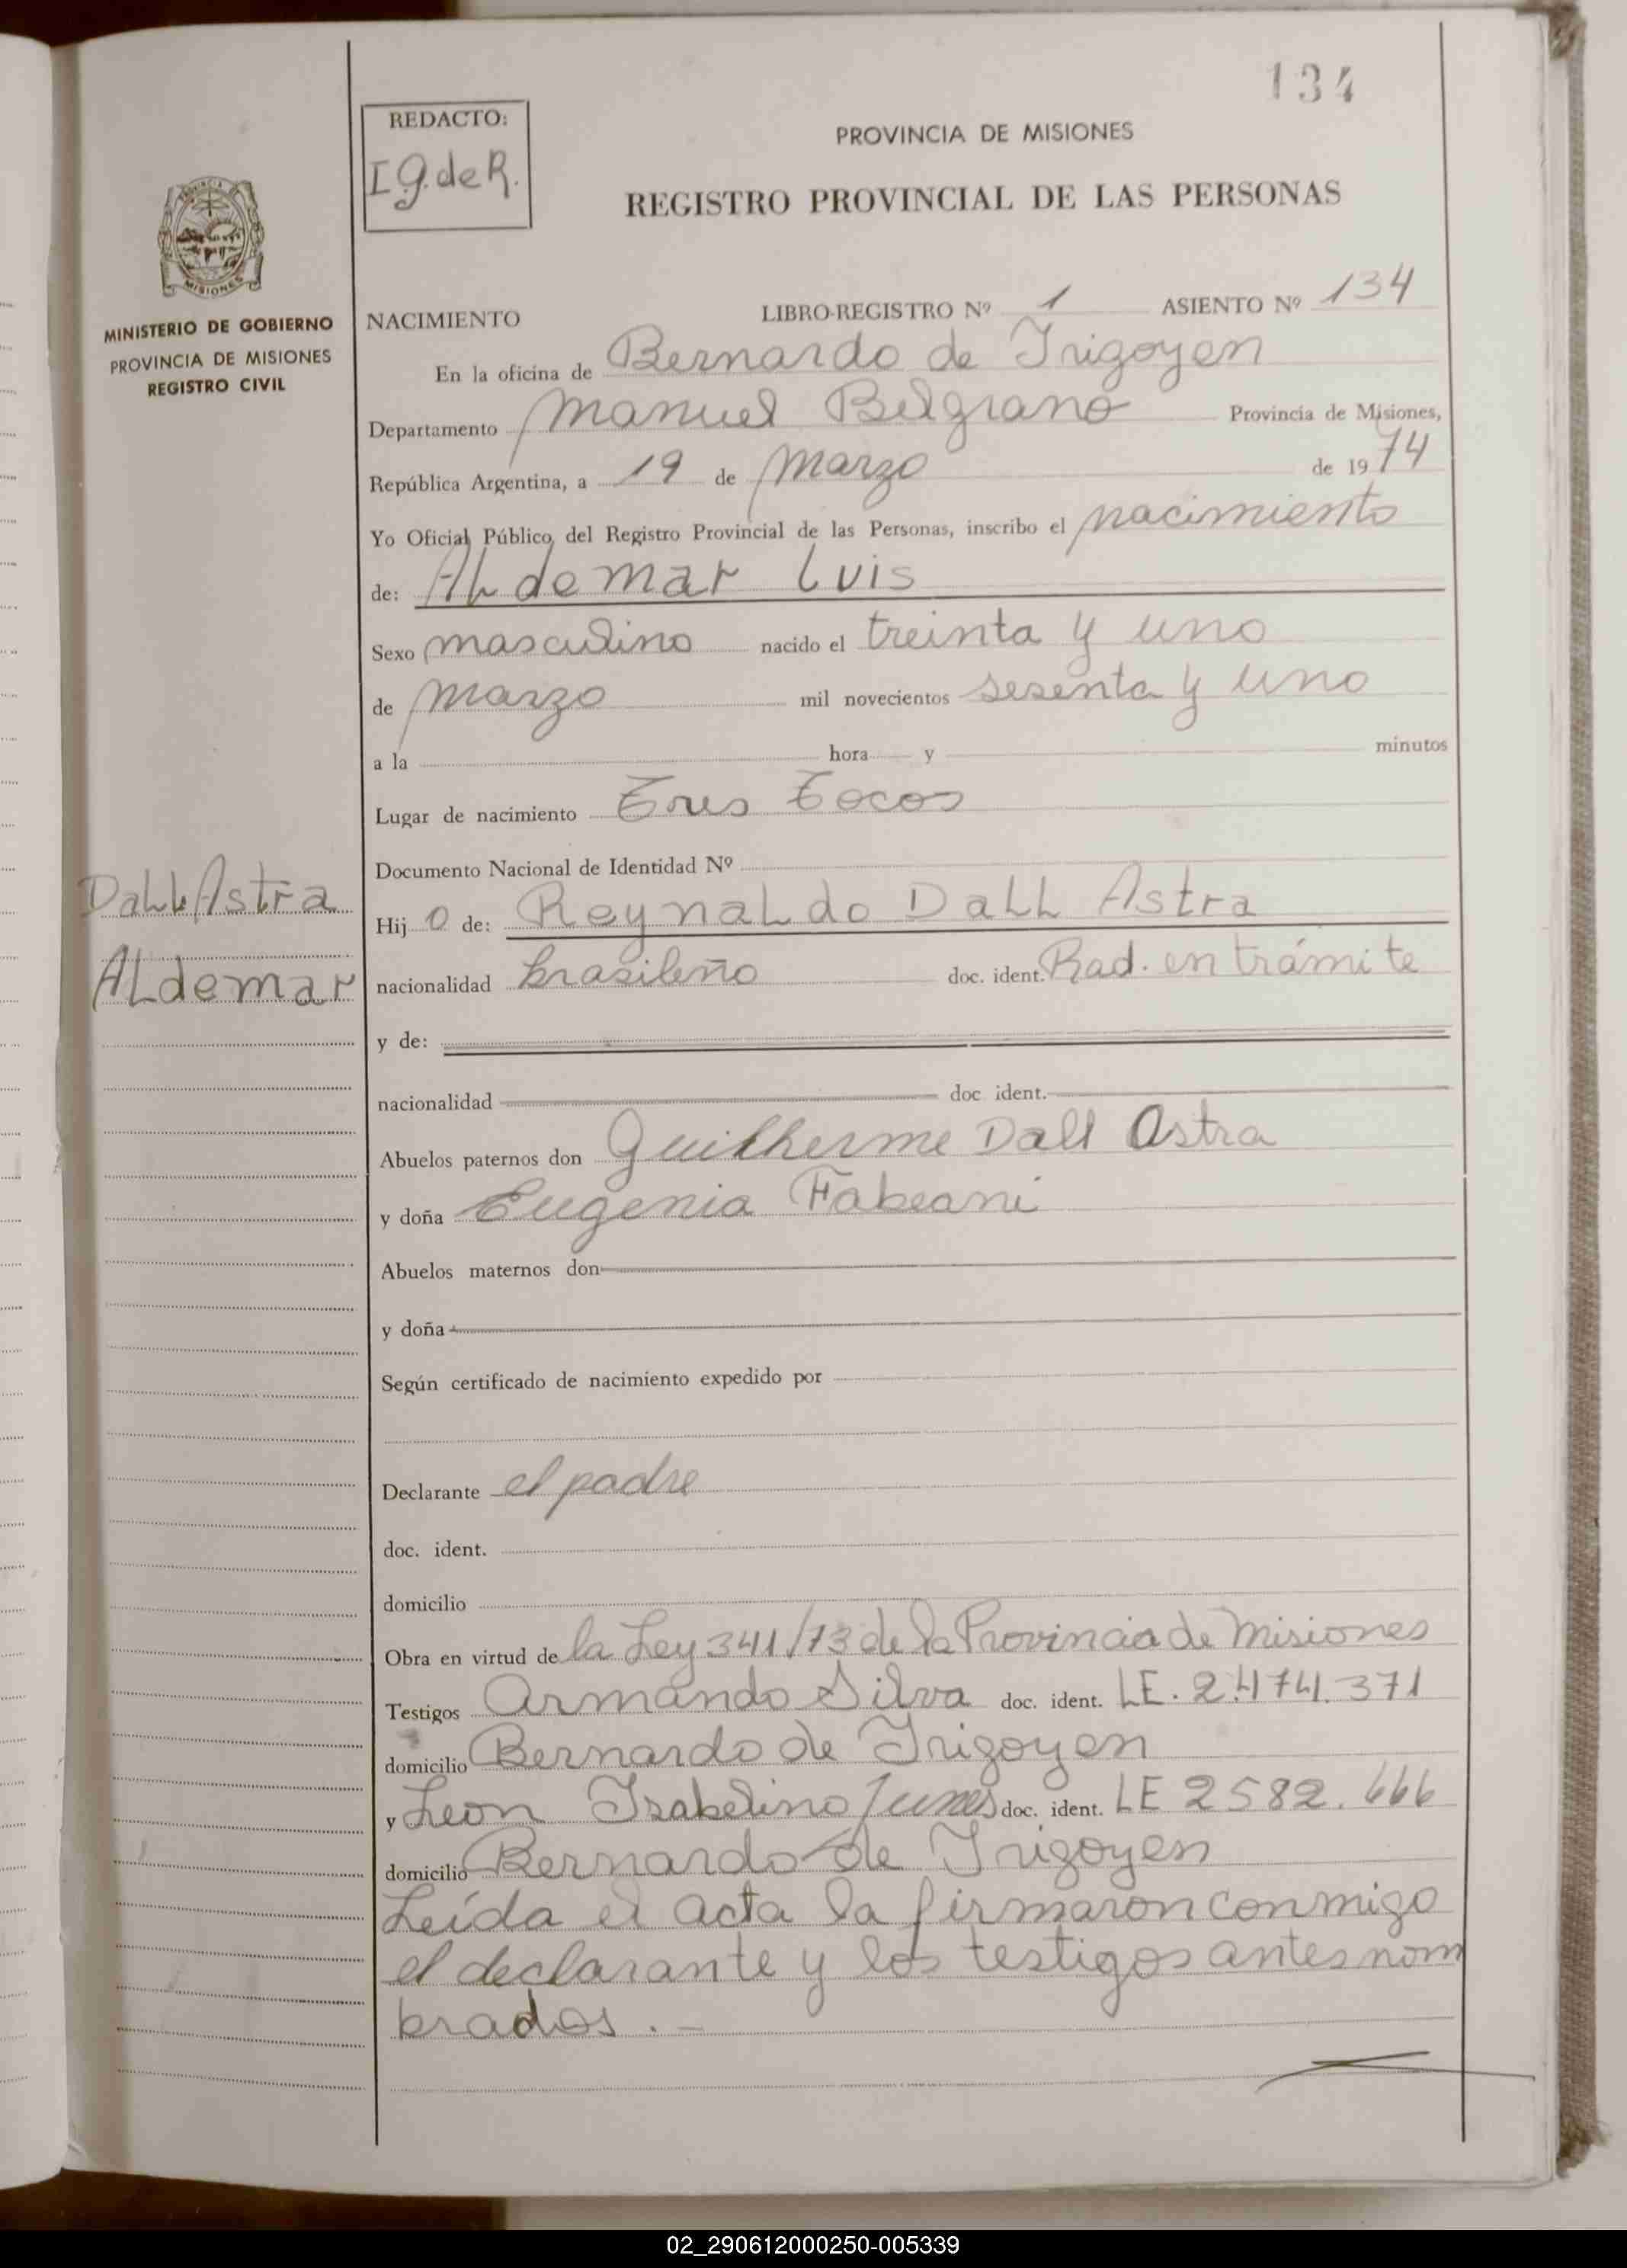 134
REDACTO:
I g. de R.
PROVINCIA DE MISIONES
REGISTRO PROVINCIAL DE LAS PERSONAS
MISIONES
MINISTERIO DE GOBIERNO
PROVINCIA DE MISIONES
REGISTRO CIVIL
NACIMIENTO LIBRO-REGISTRO Nº 1 ASIENTO Nº 134
En la oficina de Bernardo de Irigoyen
Departamento Manuel Belgrano Provincia de Misiones,
República Argentina, a 19 de Marzo de 1974
Yo Oficial Público del Registro Provincial de las Personas, inscribo el nacimiento
de: ALdemar Luis
Sexo masculino nacido el treinta y uno
de marzo mil novecientos sesenta y uno
a la hora y minutos
Lugar de nacimiento Tres Tocos
Documento Nacional de Identidad Nº
DaLL Astra
ALdemar
Hijo de: ReynaLdo DaLL Astra
nacionalidad brasileño doc. ident. Rad. en trámite
y de:
nacionalidad doc ident.
Abuelos paternos don Guilherme Dall Astra
y doña Eugenia Fabeani
Abuelos maternos don
y doña
Según certificado de nacimiento expedido por
Declarante el padre
doc. ident.
domicilio
Obra en virtud de la Ley 341/73 de la Provincia de Misiones
Testigos Armando Silva doc. ident. LE. 2.474.371
domicilio Bernardo de Irigoyen
y Leon Isabelino doc. ident. LE 2582.666
domicilio Bernardo de Irigoyen
Leída el acta la firmaron conmigo
el declarante y los testigos antes nom
brados . -
02_290612000250-005339